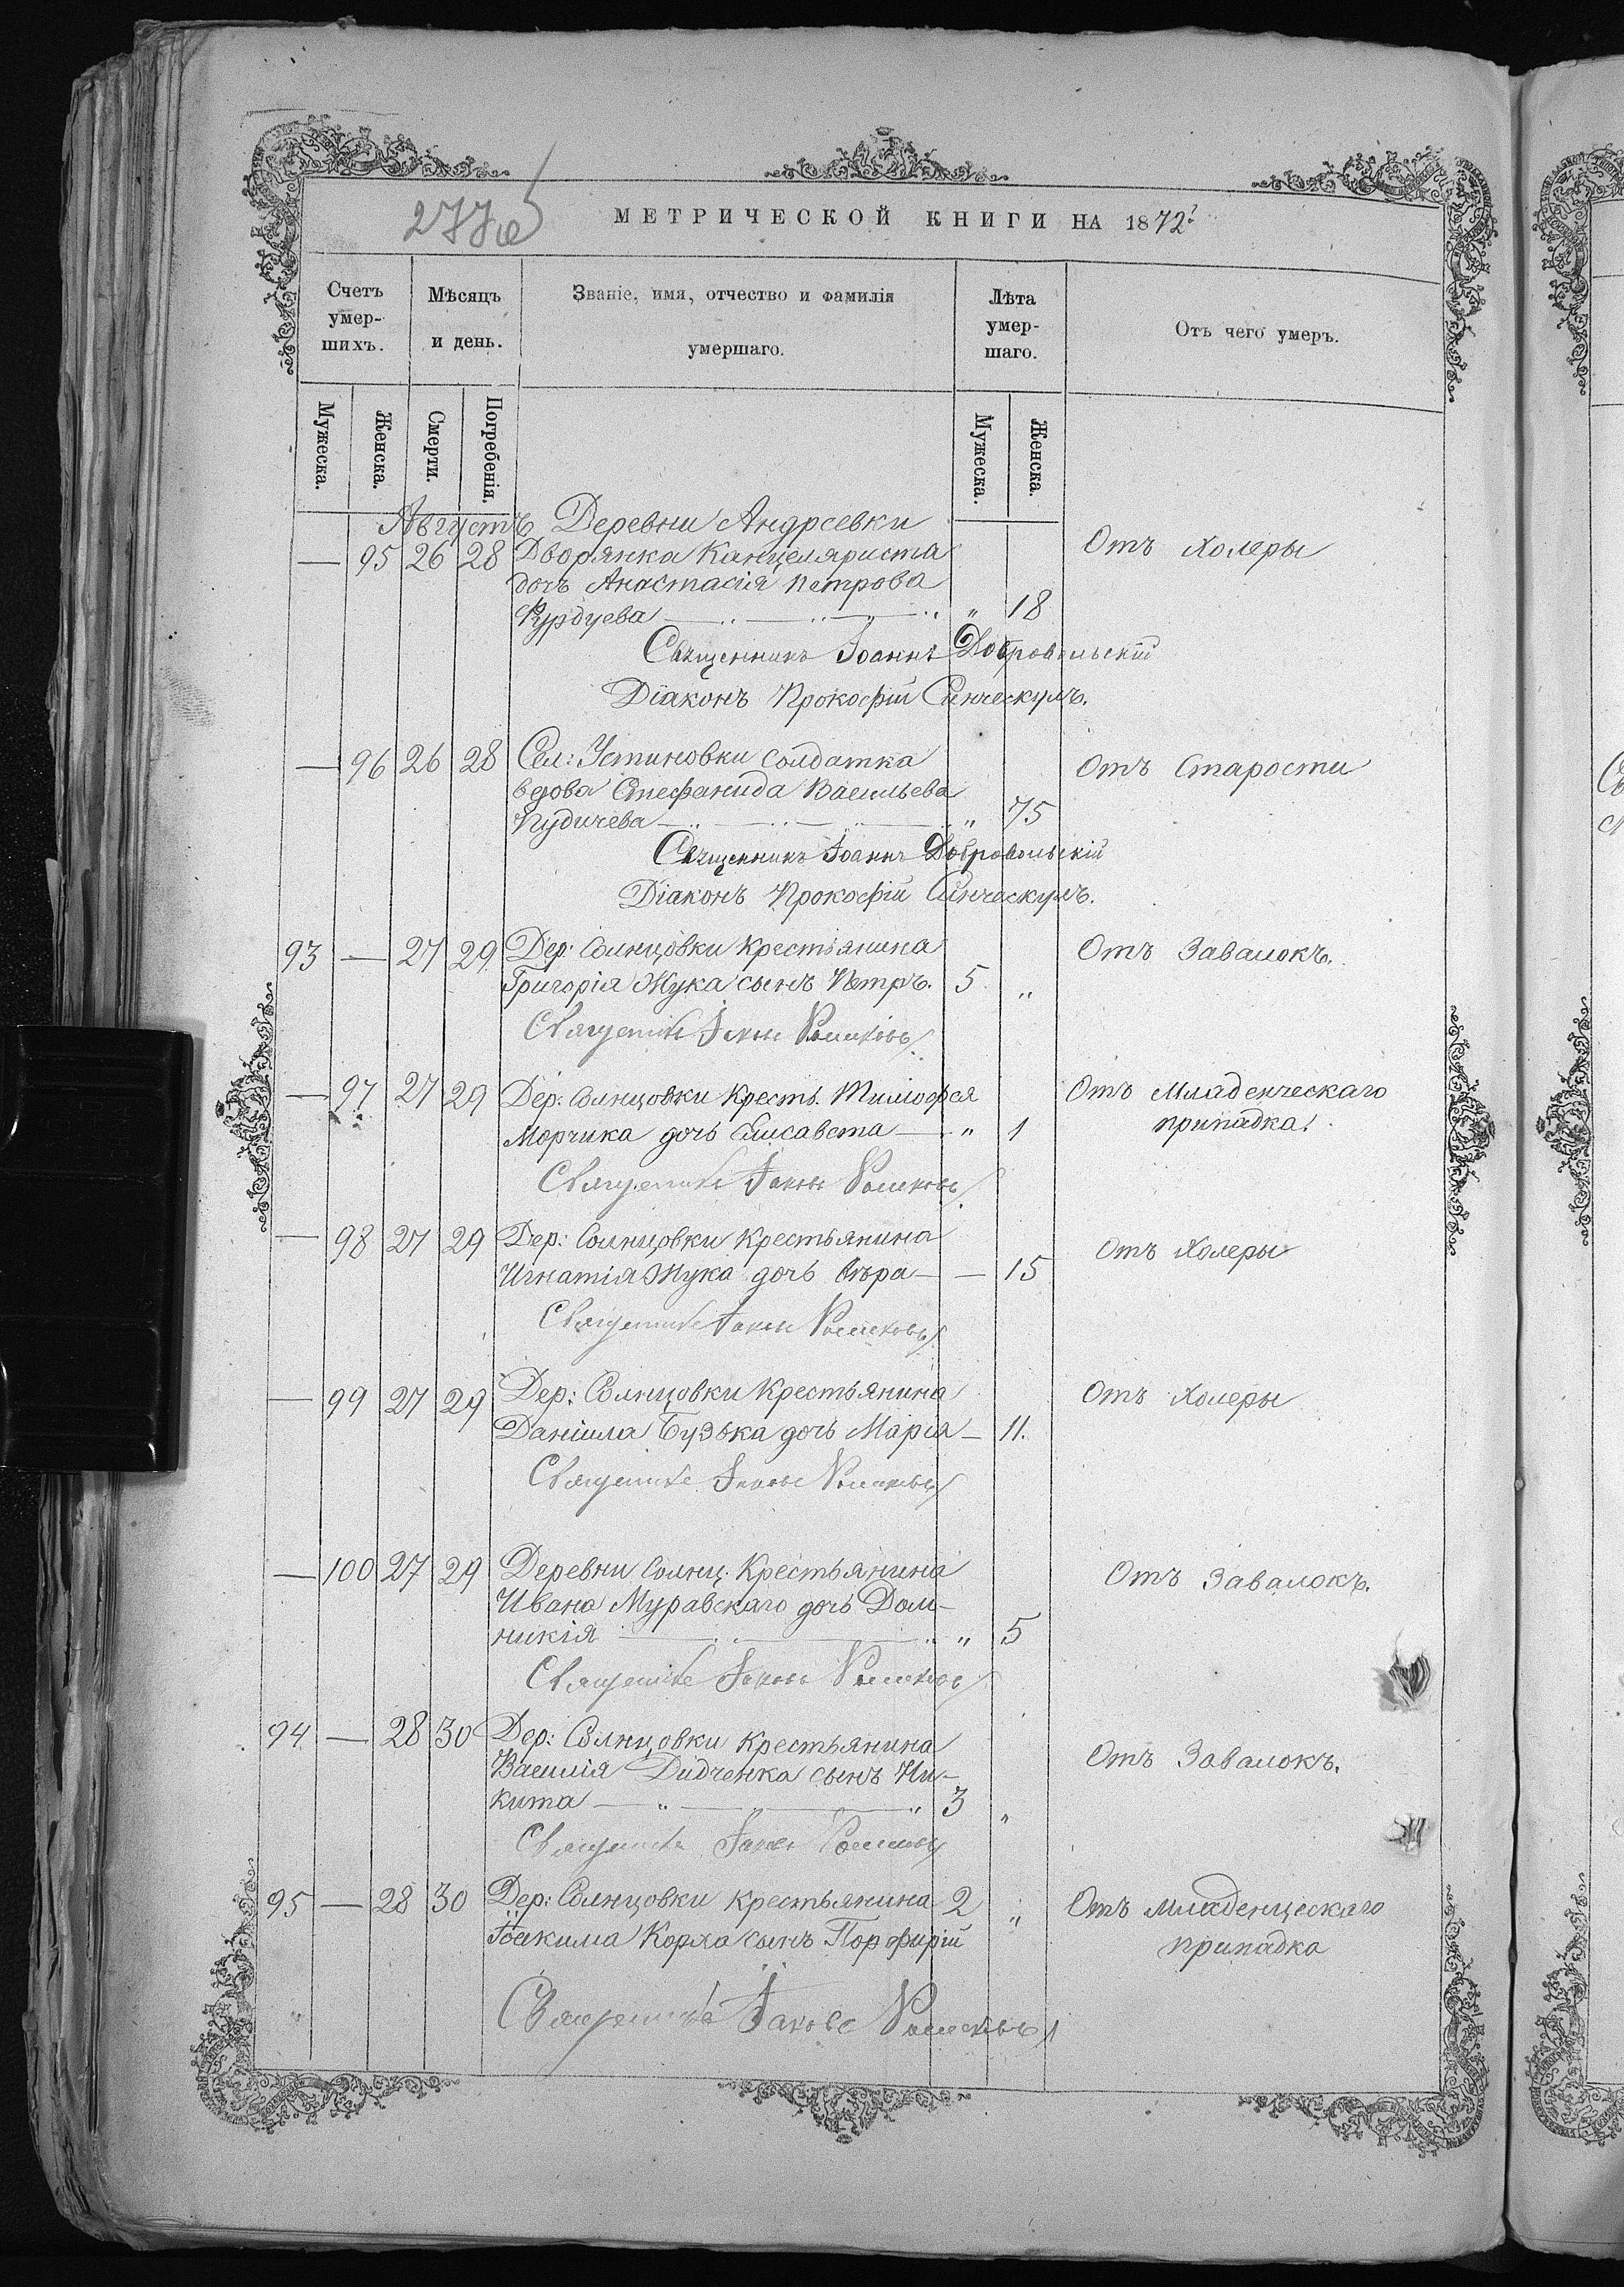 277
МЕТРИЧЕСКОЙ КНИГИ НА 1872
Счетъ умер-шихъ.
Мѣсяцъ и день.
Званіе, имя, отчество и фамилія умершаго.
Лѣта умер-шаго.
Отъ чего умеръ.
Мужеска. Женска. Смерти. Погребенія. Мужеска. Женска.
Августъ Деревни Андреевки
— 95 26 28 Дворянка Канцеляриста Отъ Холеры
дочь Анастасія Петрова
Курдуева — „ — „ — „ „ 18
Священникъ Іоаннъ Добровольскій
Діаконъ Прокофій
— 96 26 28 Сел: Устиновки солдатка Отъ Старости
вдова Стефанида Васильева
Пудичева — „ — „ — „ — „ 75
Священникъ Іоаннъ Добровольскій
Діаконъ Прокофій
93 — 27 29 Дер: Солнцовки Крестьянина Отъ Завалокъ.
Григорія Жука сынъ Петръ. 5 „
Священникъ Іаковъ
— 97 27 29 Дер: Солнцовки Кресть. Тимофея Отъ Младенческаго
Морчика дочь Елисавета — „ 1 припадка.
Священникъ Іаковъ
— 98 27 29 Дер: Солнцовки Крестьянина Отъ Холеры
Игнатія Жука дочь Вѣра — — 15
Священникъ Іаковъ
— 99 27 29 Дер: Солнцовки Крестьянина Отъ Холеры
Даніила Бузька дочь Марія — 11.
Священникъ Іаковъ
— 100 27 29 Деревни Солнц. Крестьянина Отъ Завалокъ.
Ивана Муравскаго дочь Дом-
никія — „ — „ „ 5
Священникъ Іаковъ
94 — 28 30 Дер: Солнцовки Крестьянина
Василія Дидченка сынъ Ни- Отъ Завалокъ.
кита — „ — „ 3 „
Священникъ Іаковъ
95 — 28 30 Дер: Солнцовки Крестьянина 2 „ Отъ младенческаго
Іоакима Коржа сынъ Порфирій припадка
Священникъ Іаковъ